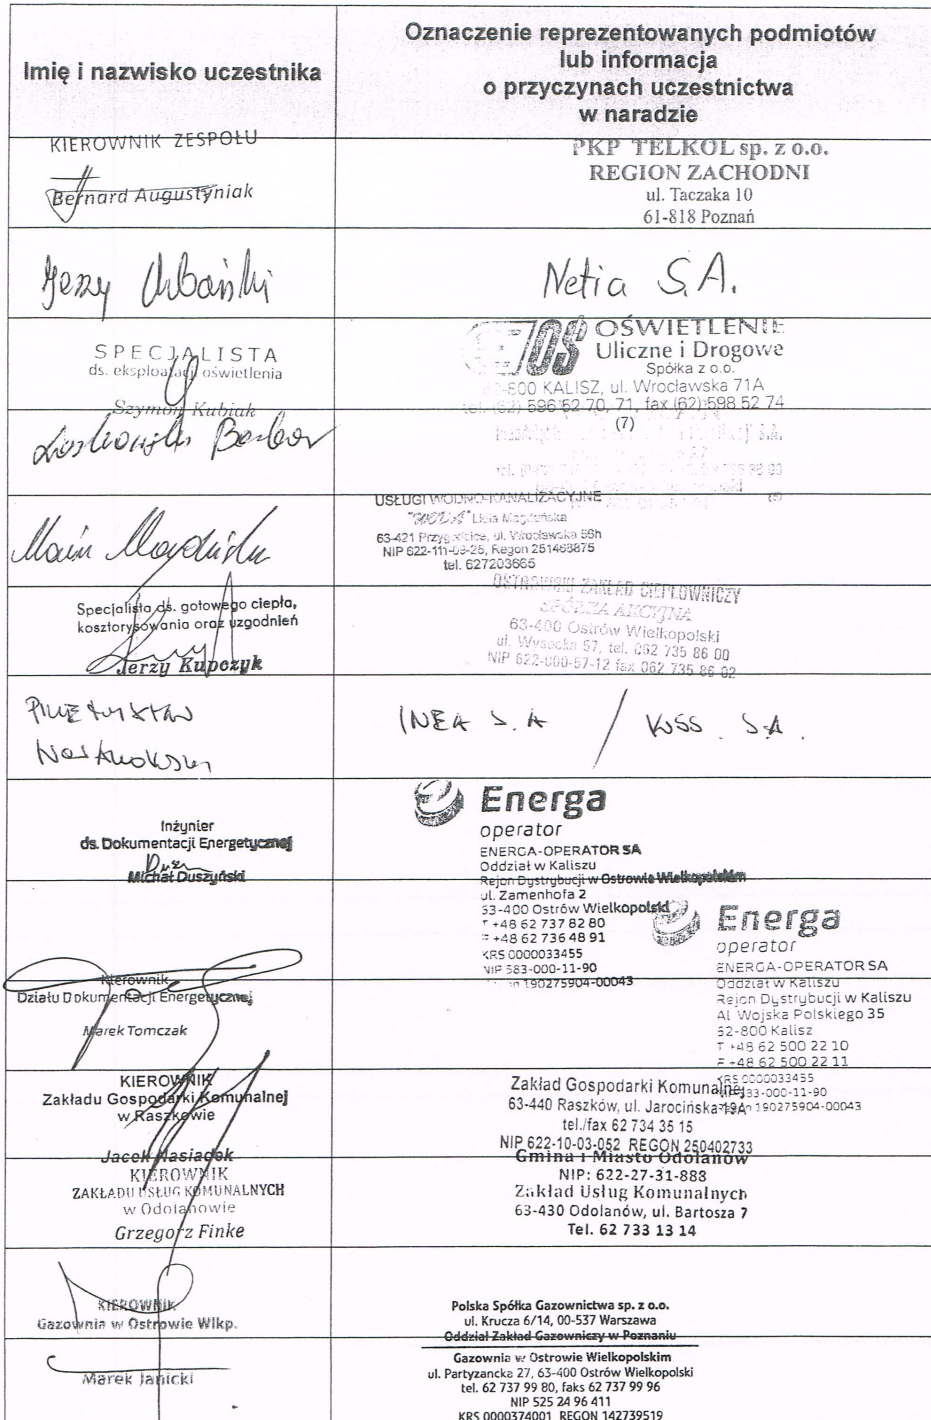 Imię i nazwisko uczestnika
Oznaczenie reprezentowanych podmiotów
lub informacja
o przyczynach uczestnictwa
w naradzie
KIEROWNIK ZESPOŁU
Bernard Augustyniak
PKP TELKOL sp. z o.o.
REGION ZACHODNI
ul. Taczaka 10
61-818 Poznań
Jerzy Urbański
Netia S.A.
SPECJALISTA
ds. eksploatacji oświetlenia
Szymon Kubiak
OŚWIETLENIE
Uliczne i Drogowe
Spółka z o.o.
62-800 KALISZ, ul. Wrocławska 71A
tel. (62) 598 52 70, 71, fax (62) 598 52 74
(7)
USŁUGI WODNO-KANALIZACYJNE
63-421 Przygodzice, ul. Wrocławska 56h
tel. 627203665
Specjalista ds. gotowego ciepła,
kosztorysowania oraz uzgodnień
Jerzy Kupczyk
OSTROWSKI ZAKŁAD CIEPŁOWNICZY
SPÓŁKA AKCYJNA
63-400 Ostrów Wielkopolski
ul. Wysocka 57, tel. 062 735 86 00
NIP 622-000-57-12 fax 062 735 86 02
INEA S.A /
Inżynier
ds. Dokumentacji Energetycznej
Michał Duszyński
Energa
operator
ENERGA-OPERATOR SA
Oddział w Kaliszu
Rejon Dystrybucji w Ostrowie Wielkopolskim
ul. Zamenhofa 2
63-400 Ostrów Wielkopolski
T +48 62 737 82 80
F +48 62 736 48 91
KRS 0000033455
NIP 583-000-11-90
190275904-00043
Kierownik
Działu Dokumentacji Energetycznej
Marek Tomczak
Energa
operator
ENERGA-OPERATOR SA
Oddział w Kaliszu
Rejon Dystrybucji w Kaliszu
Al. Wojska Polskiego 35
62-800 Kalisz
T +48 62 500 22 10
F +48 62 500 22 11
KRS 0000033455
NIP 583-000-11-90
190275904-00043
KIEROWNIK
Zakładu Gospodarki Komunalnej
w Raszkowie
Jacek Nasiadek
Zakład Gospodarki Komunalnej
63-440 Raszków, ul. Jarocińska 19A
tel./fax 62 734 35 15
NIP 622-10-03-052 REGON 250402733
KIEROWNIK
ZAKŁADU USŁUG KOMUNALNYCH
w Odolanowie
Grzegorz Finke
Gmina i Miasto Odolanów
NIP: 622-27-31-888
Zakład Usług Komunalnych
63-430 Odolanów, ul. Bartosza 7
Tel. 62 733 13 14
KIEROWNIK
Gazownia w Ostrowie Wlkp.
Marek Janicki
Polska Spółka Gazownictwa sp. z o.o.
ul. Krucza 6/14, 00-537 Warszawa
Oddział Zakład Gazowniczy w Poznaniu
Gazownia w Ostrowie Wielkopolskim
ul. Partyzancka 27, 63-400 Ostrów Wielkopolski
tel. 62 737 99 80, faks 62 737 99 96
NIP 525 24 96 411
KRS 0000374001 REGON 142739519